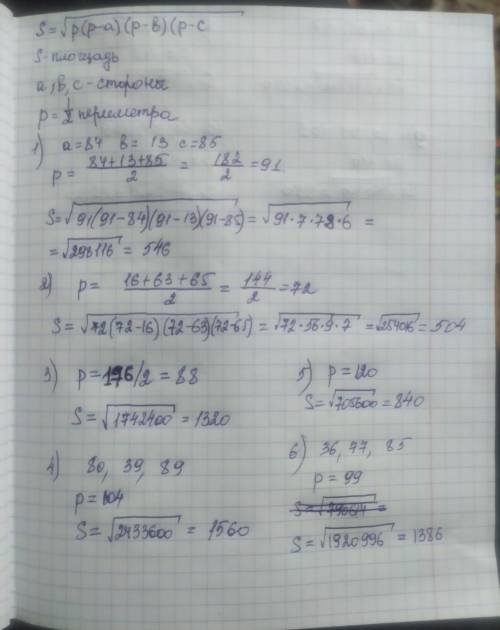 S=√p(p-a)(p-в)(p-c
S-площадь
a,в,c-стороны
p=1/2 периметра
1) a=84 в= 13 c=85
p= 84+13+85/2 = 182/2 =91
S=√91(91-84)(91-13)(91-85) = √91·7·78·6 =
=√298116 = 546
2) p= 16+63+65/2 = 144/2 =72
S=√72(72-16)(72-63)(72-65) = √72·56·9·7 =√254016 = 504
3) p=176/2 = 88
S=√1742400 = 1320
4) 80, 39, 89
p=104
S=√2433600 = 1560
5) p=120
S=√705600 =840
6) 36, 77, 85
p=99
S=√1920996 = 1386